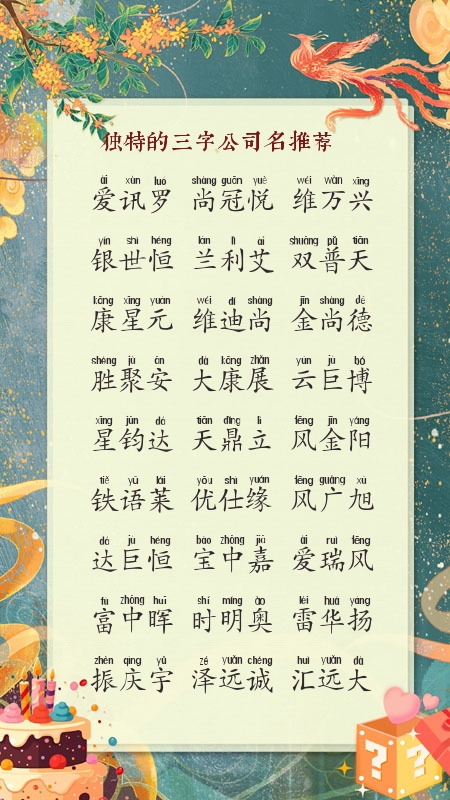 独特的三字公司名推荐
ài xùn luó shàng guān yuè wéi wàn xīng
爱讯罗 尚冠悦 维万兴
yín shì héng lán lì ài shuāng pǔ tiān
银世恒 兰利艾 双普天
kāng xīng yuán wéi dí shàng jīn shàng dé
康星元 维迪尚 金尚德
shèng jù ān dà kāng zhǎn yún jù bó
胜聚安 大康展 云巨博
xīng jūn dá tiān dǐng lì fēng jīn yáng
星钧达 天鼎立 风金阳
tiě yǔ lái yōu shì yuán fēng guǎng xù
铁语莱 优仕缘 风广旭
dá jù héng bǎo zhōng jiā ài ruì fēng
达巨恒 宝中嘉 爱瑞风
fù zhōng huī shí míng ào léi huá yáng
富中晖 时明奥 雷华扬
zhèn qìng yǔ zé yuǎn chéng huì yuǎn dà
振庆宇 泽远诚 汇远大
? ?